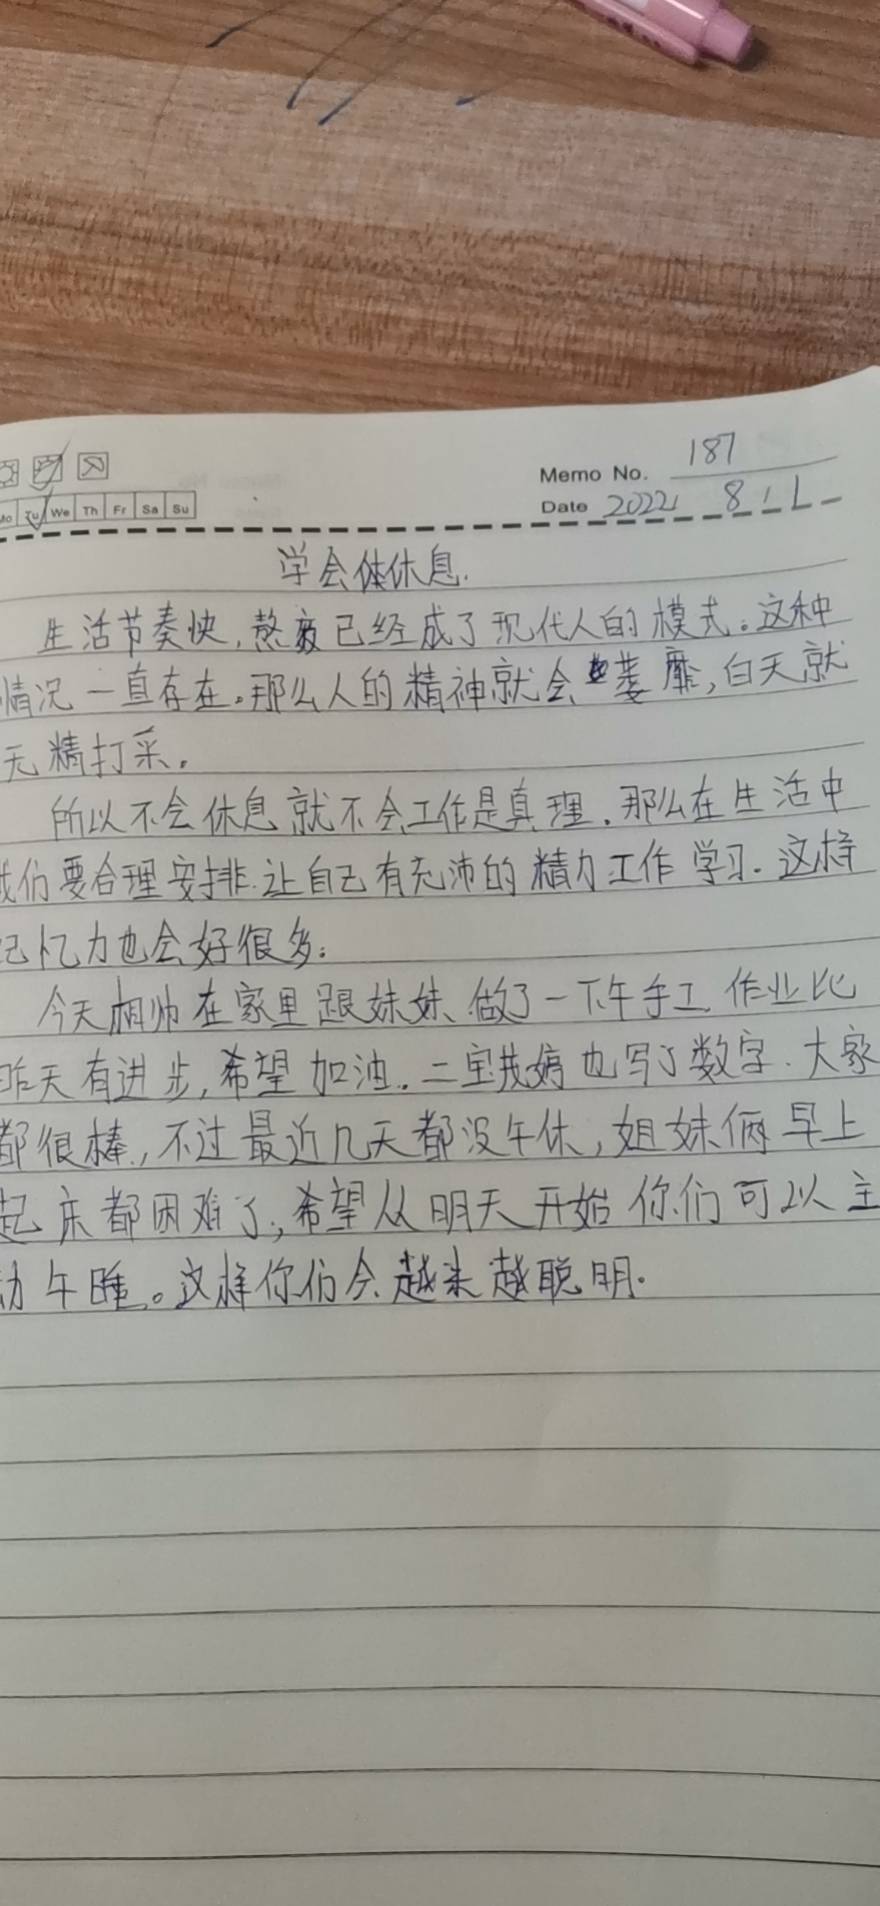 Memo No. 187
Mo Tu We Th Fr Sa Su
Date 2022 8 1 1
学会休息.
生活节奏快,熬夜已经成了现代人的模式。这种
情况一直存在。那么人的精神就会萎靡,白天就
无精打采。
所以不会休息就不会工作是真理.那么在生活中
我们要合理安排.让自己有充沛的精力工作学习.这样
记忆力也会好很多.
今天相帅在家里跟妹妹做了一下午手工.作业比
昨天有进步,希望加油.二宝也写了数字.大家
都很棒,不过最近几天都没午休,姐妹俩早上
起床都困难了,希望从明天开始你们可以主
动午睡。这样你们会越来越聪明.